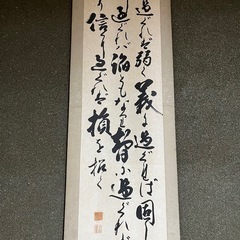 過ぐれば弱く義に過ぐれば固
過ぐれば諂ともなり智に過ぐれば
り信に過ぐれば損を招く